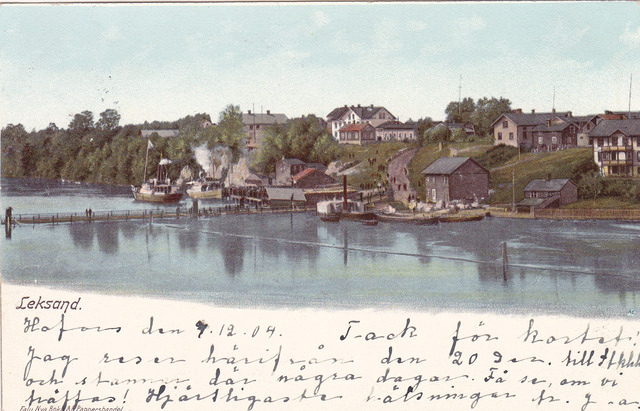 Leksand.
Hofors den 7.12.04. Tack för kortet!
Jag reser härifrån den 20 Dec. till Sthlm
och stannar där några dagar. Få se, om vi
träffas! Hjärtligaste hälsningar fr.
Falu Nya Bok & Pappershandel